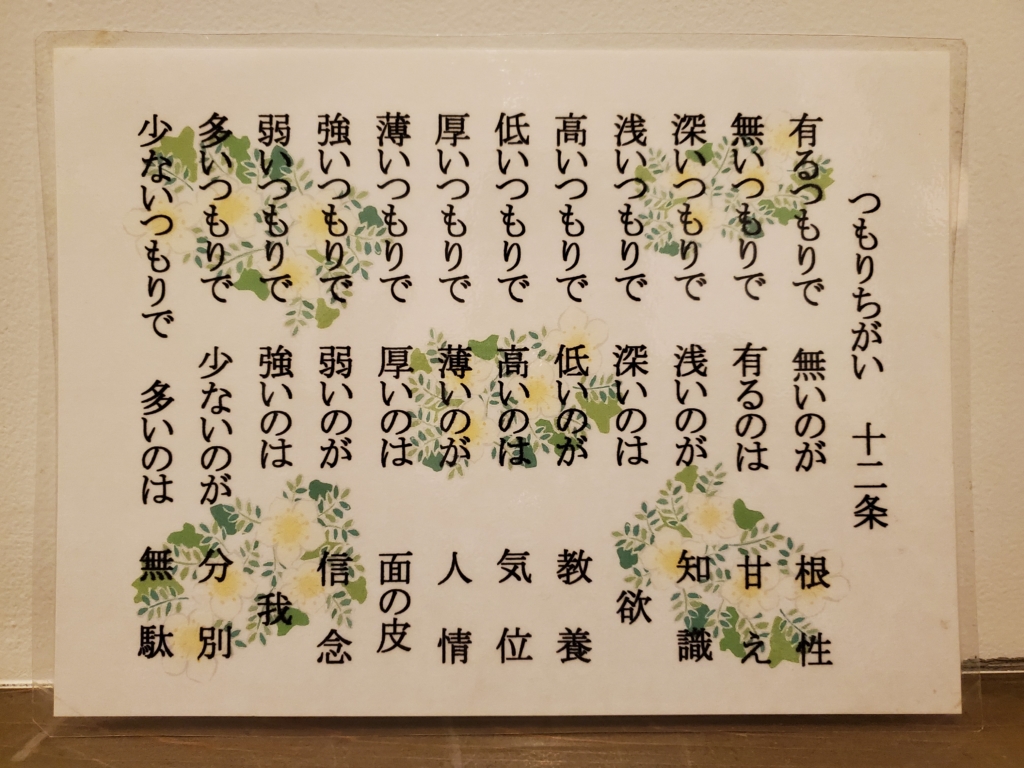 つもりちがい 十二条
有るつもりで 無いのが 根性
無いつもりで 有るのは 甘え
深いつもりで 浅いのが 知識
浅いつもりで 深いのは 欲
高いつもりで 低いのが 教養
低いつもりで 高いのは 気位
厚いつもりで 薄いのが 人情
薄いつもりで 厚いのは 面の皮
強いつもりで 弱いのが 信念
弱いつもりで 強いのは 我
多いつもりで 少ないのが 分別
少ないつもりで 多いのは 無駄